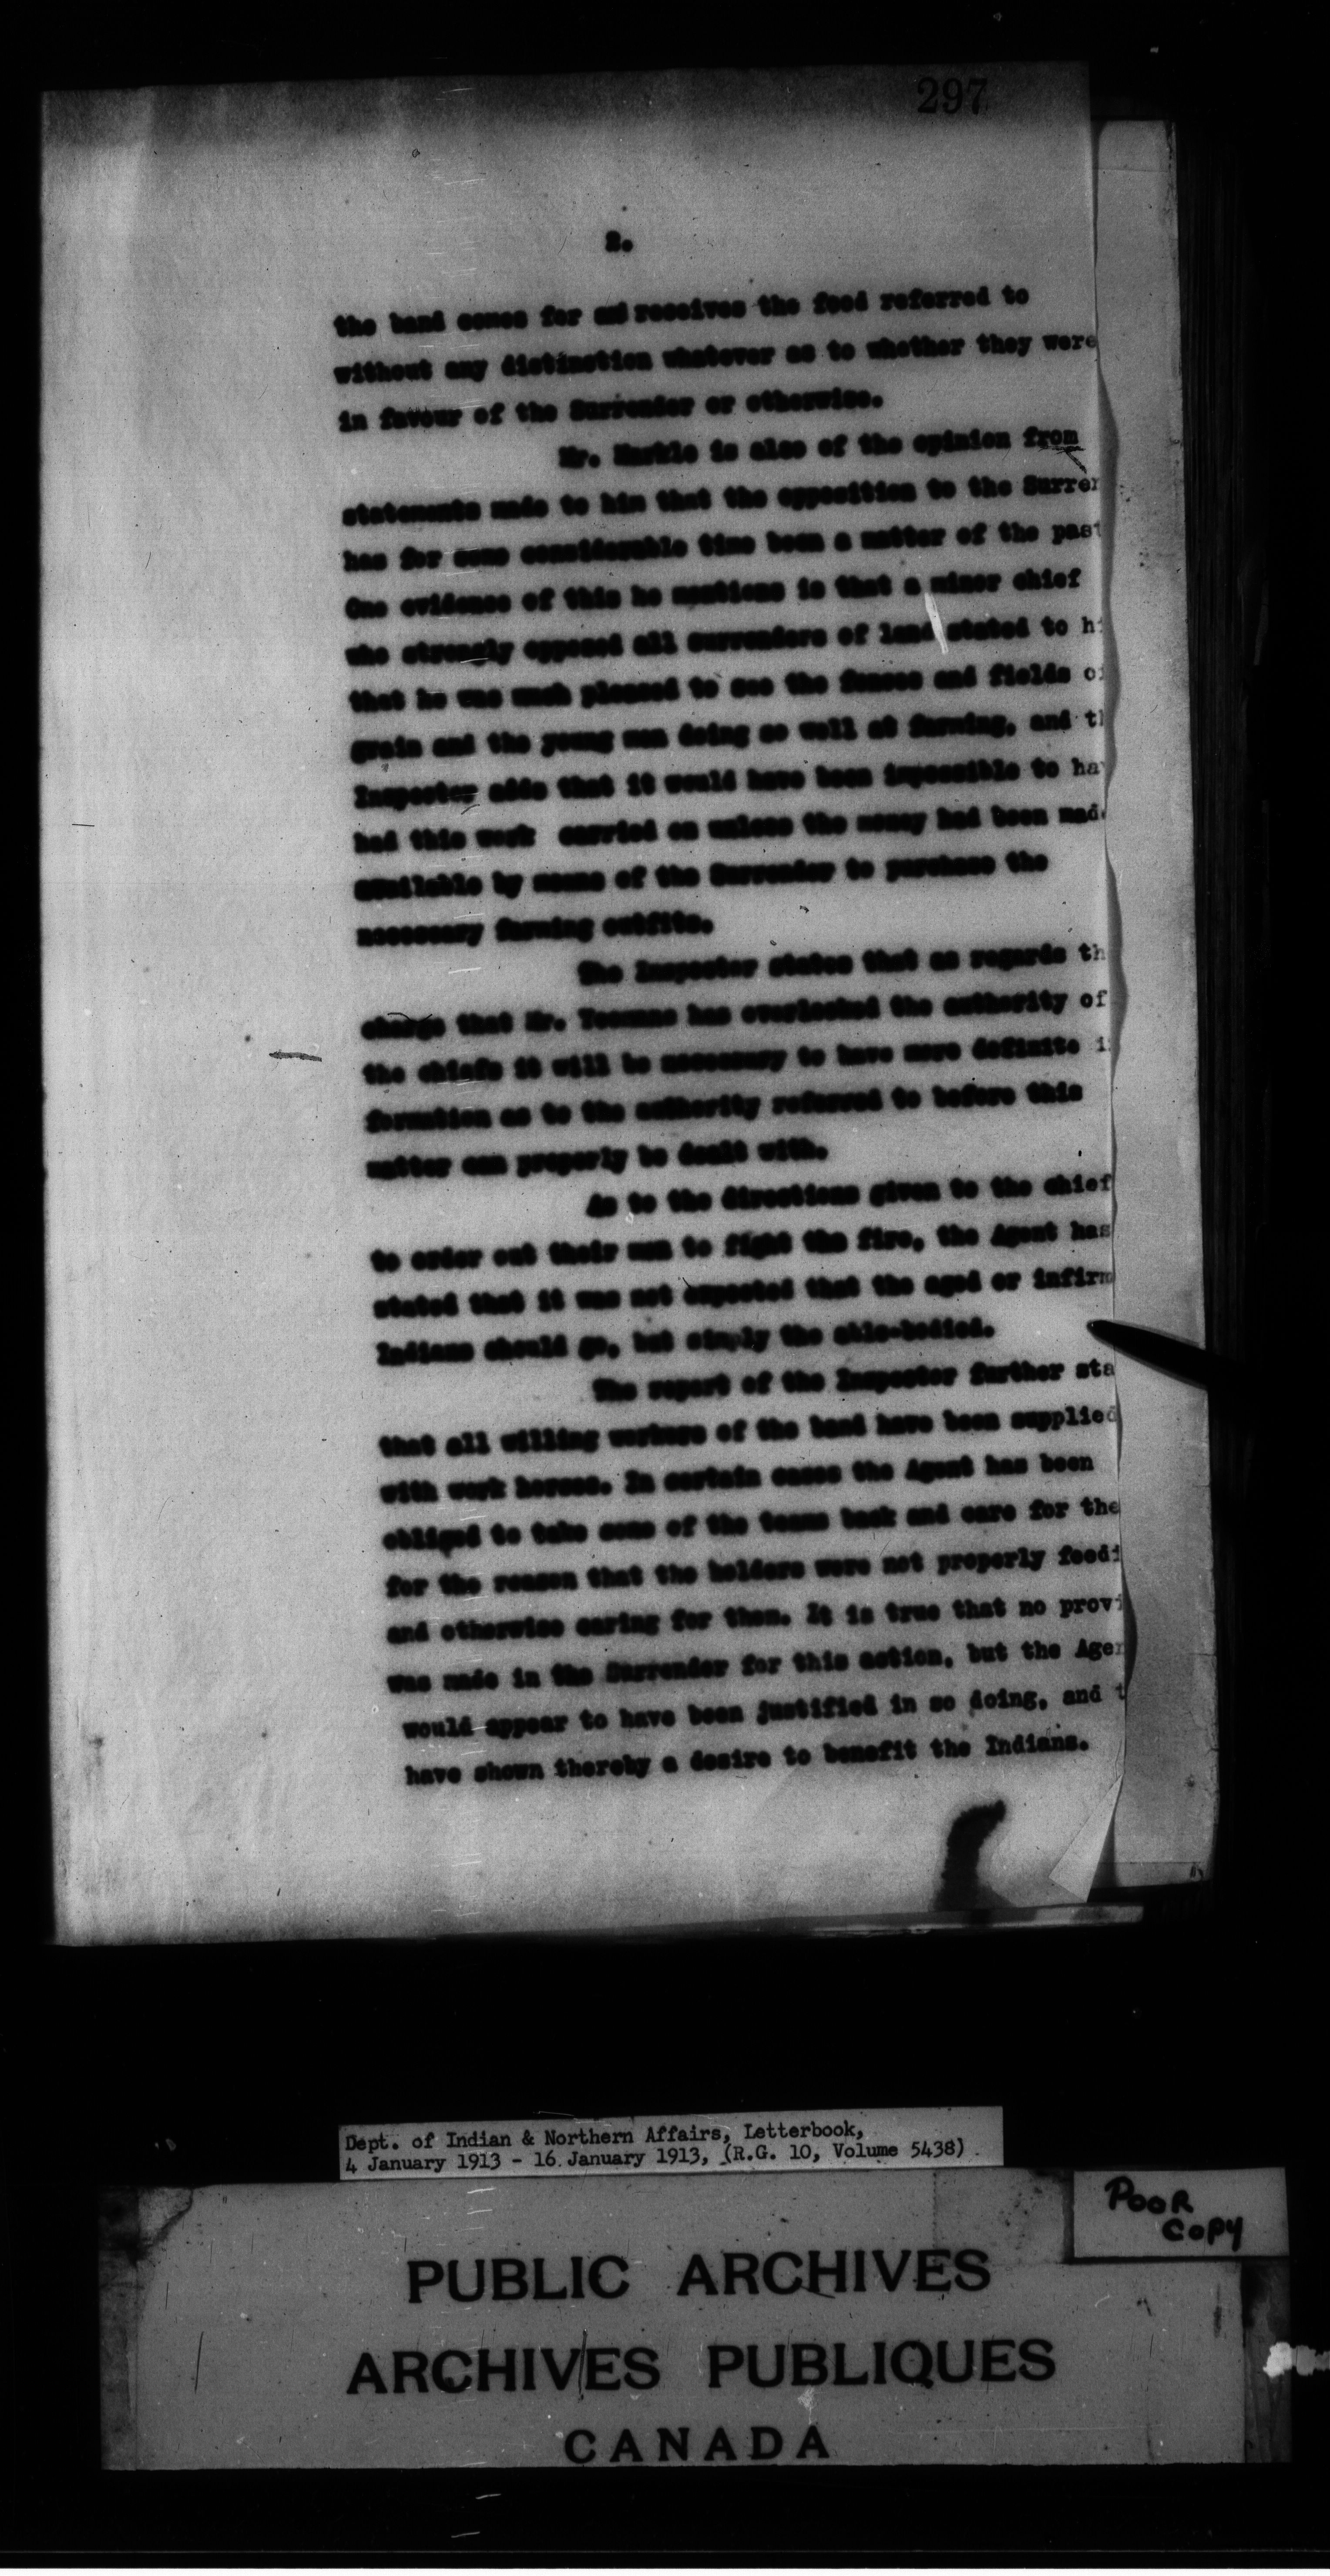 297
2.
the band comes for and receives the feed referred to
without any distinction whatever as to whether they were
in favour of the Surrender or otherwise.
Mr. Markle is also of the opinion from
statements made to him that the opposition to the Surren
has for some considerable time been a matter of the past
One evidence of this he mentions is that a minor chief
who strongly opposed all surrenders of land stated to hi
that he was much pleased to see the fences and fields of
grain and the young men doing so well at farming, and th
Inspector adds that it would have been impossible to hav
had this work carried on unless the money had been made
available by means of the Surrender to purchase the
necessary farming outfits.
The Inspector states that as regards th
charge that Mr. Yeomans has overlooked the authority of
the chiefs it will be necessary to have more definite i
formation as to the authority referred to before this
matter can properly be dealt with.
As to the directions given to the chief
to order out their men to fight the fire, the Agent has
stated that it was not expected that the aged or infirm
Indians should go, but simply the able-bodied.
The report of the Inspector further sta
that all willing workers of the band have been supplied
with work horses. In certain cases the Agent has been
obliged to take some of the teams back and care for the
for the reason that the holders were not properly feedi
and otherwise caring for them. It is true that no provi
was made in the Surrender for this action, but the Agen
would appear to have been justified in so doing, and t
have shown thereby a desire to benefit the Indians.
Dept. of Indian & Northern Affairs, Letterbook,
4 January 1913 - 16 January 1913, (R.G. 10, Volume 5438)
POOR
COPY
PUBLIC ARCHIVES
ARCHIVES PUBLIQUES
CANADA